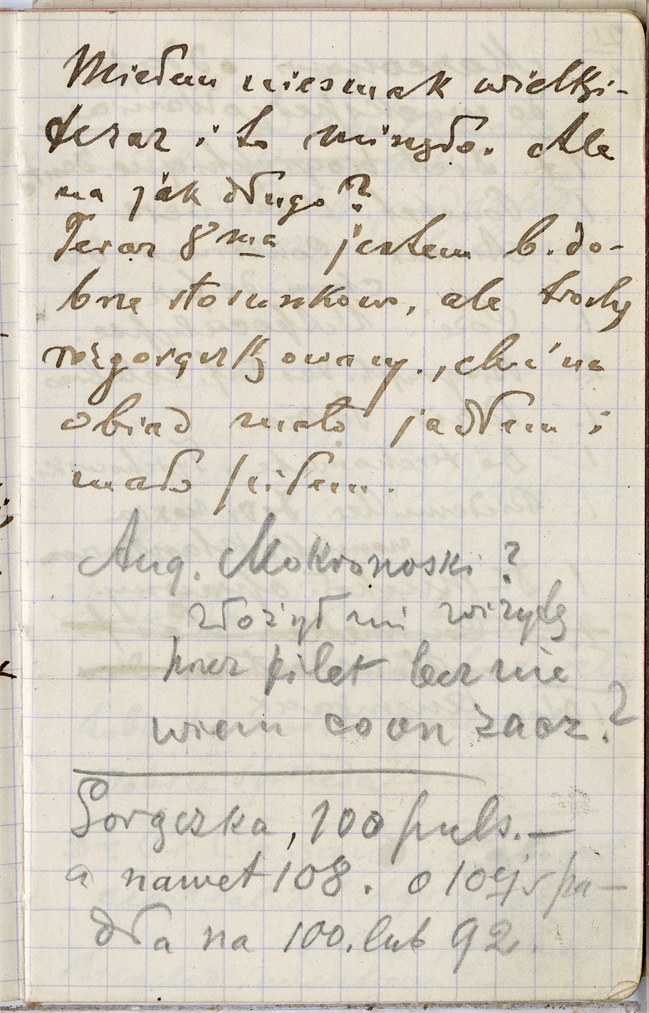 Miałem niesmak wielki-
teraz i to minęło. Ale
na jak długo?
Teraz 8ma jestem b. do-
brze stosunkowo, ale trochę
rozgorączkowany., choć na
obiad mało jadłem i
mało piłem.
Aug. Mokronoski?
złożył mi wizytę
przez bilet lecz nie
wiem co on zacz.?
Gorączka, 100 puls.—
a nawet 108. o 10ej spa-
dła na 100. lub 92.